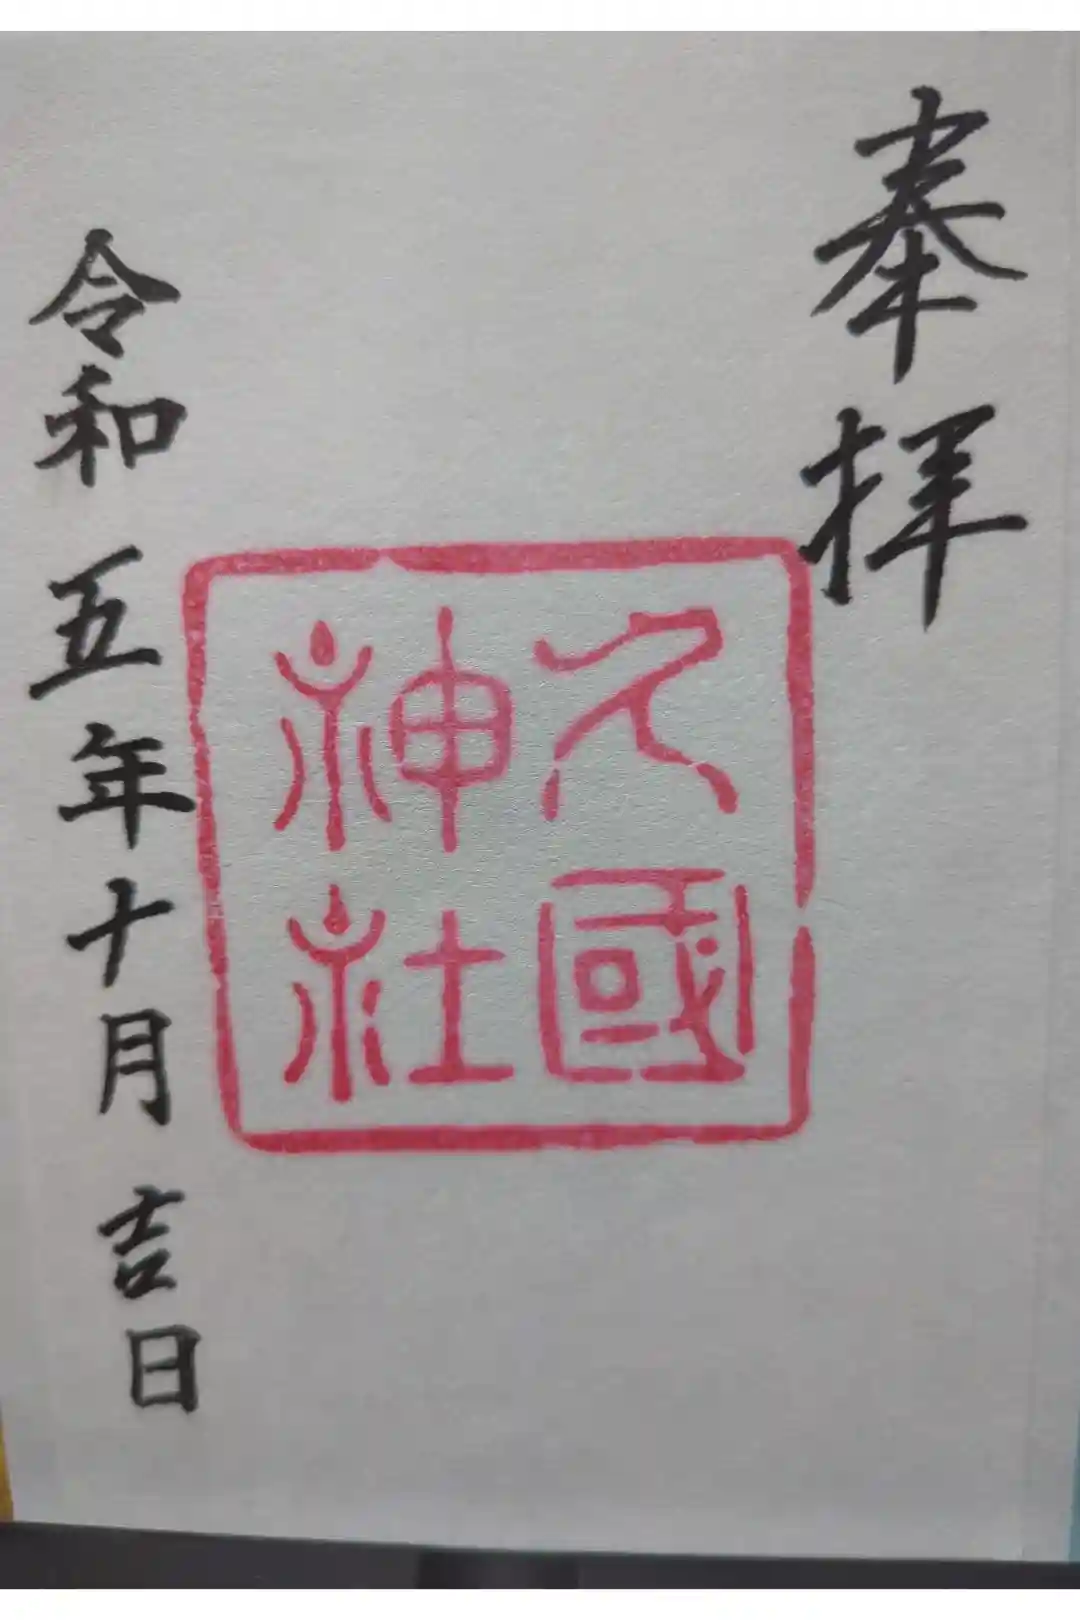 奉拝
久國
神社
令和五年十月吉日